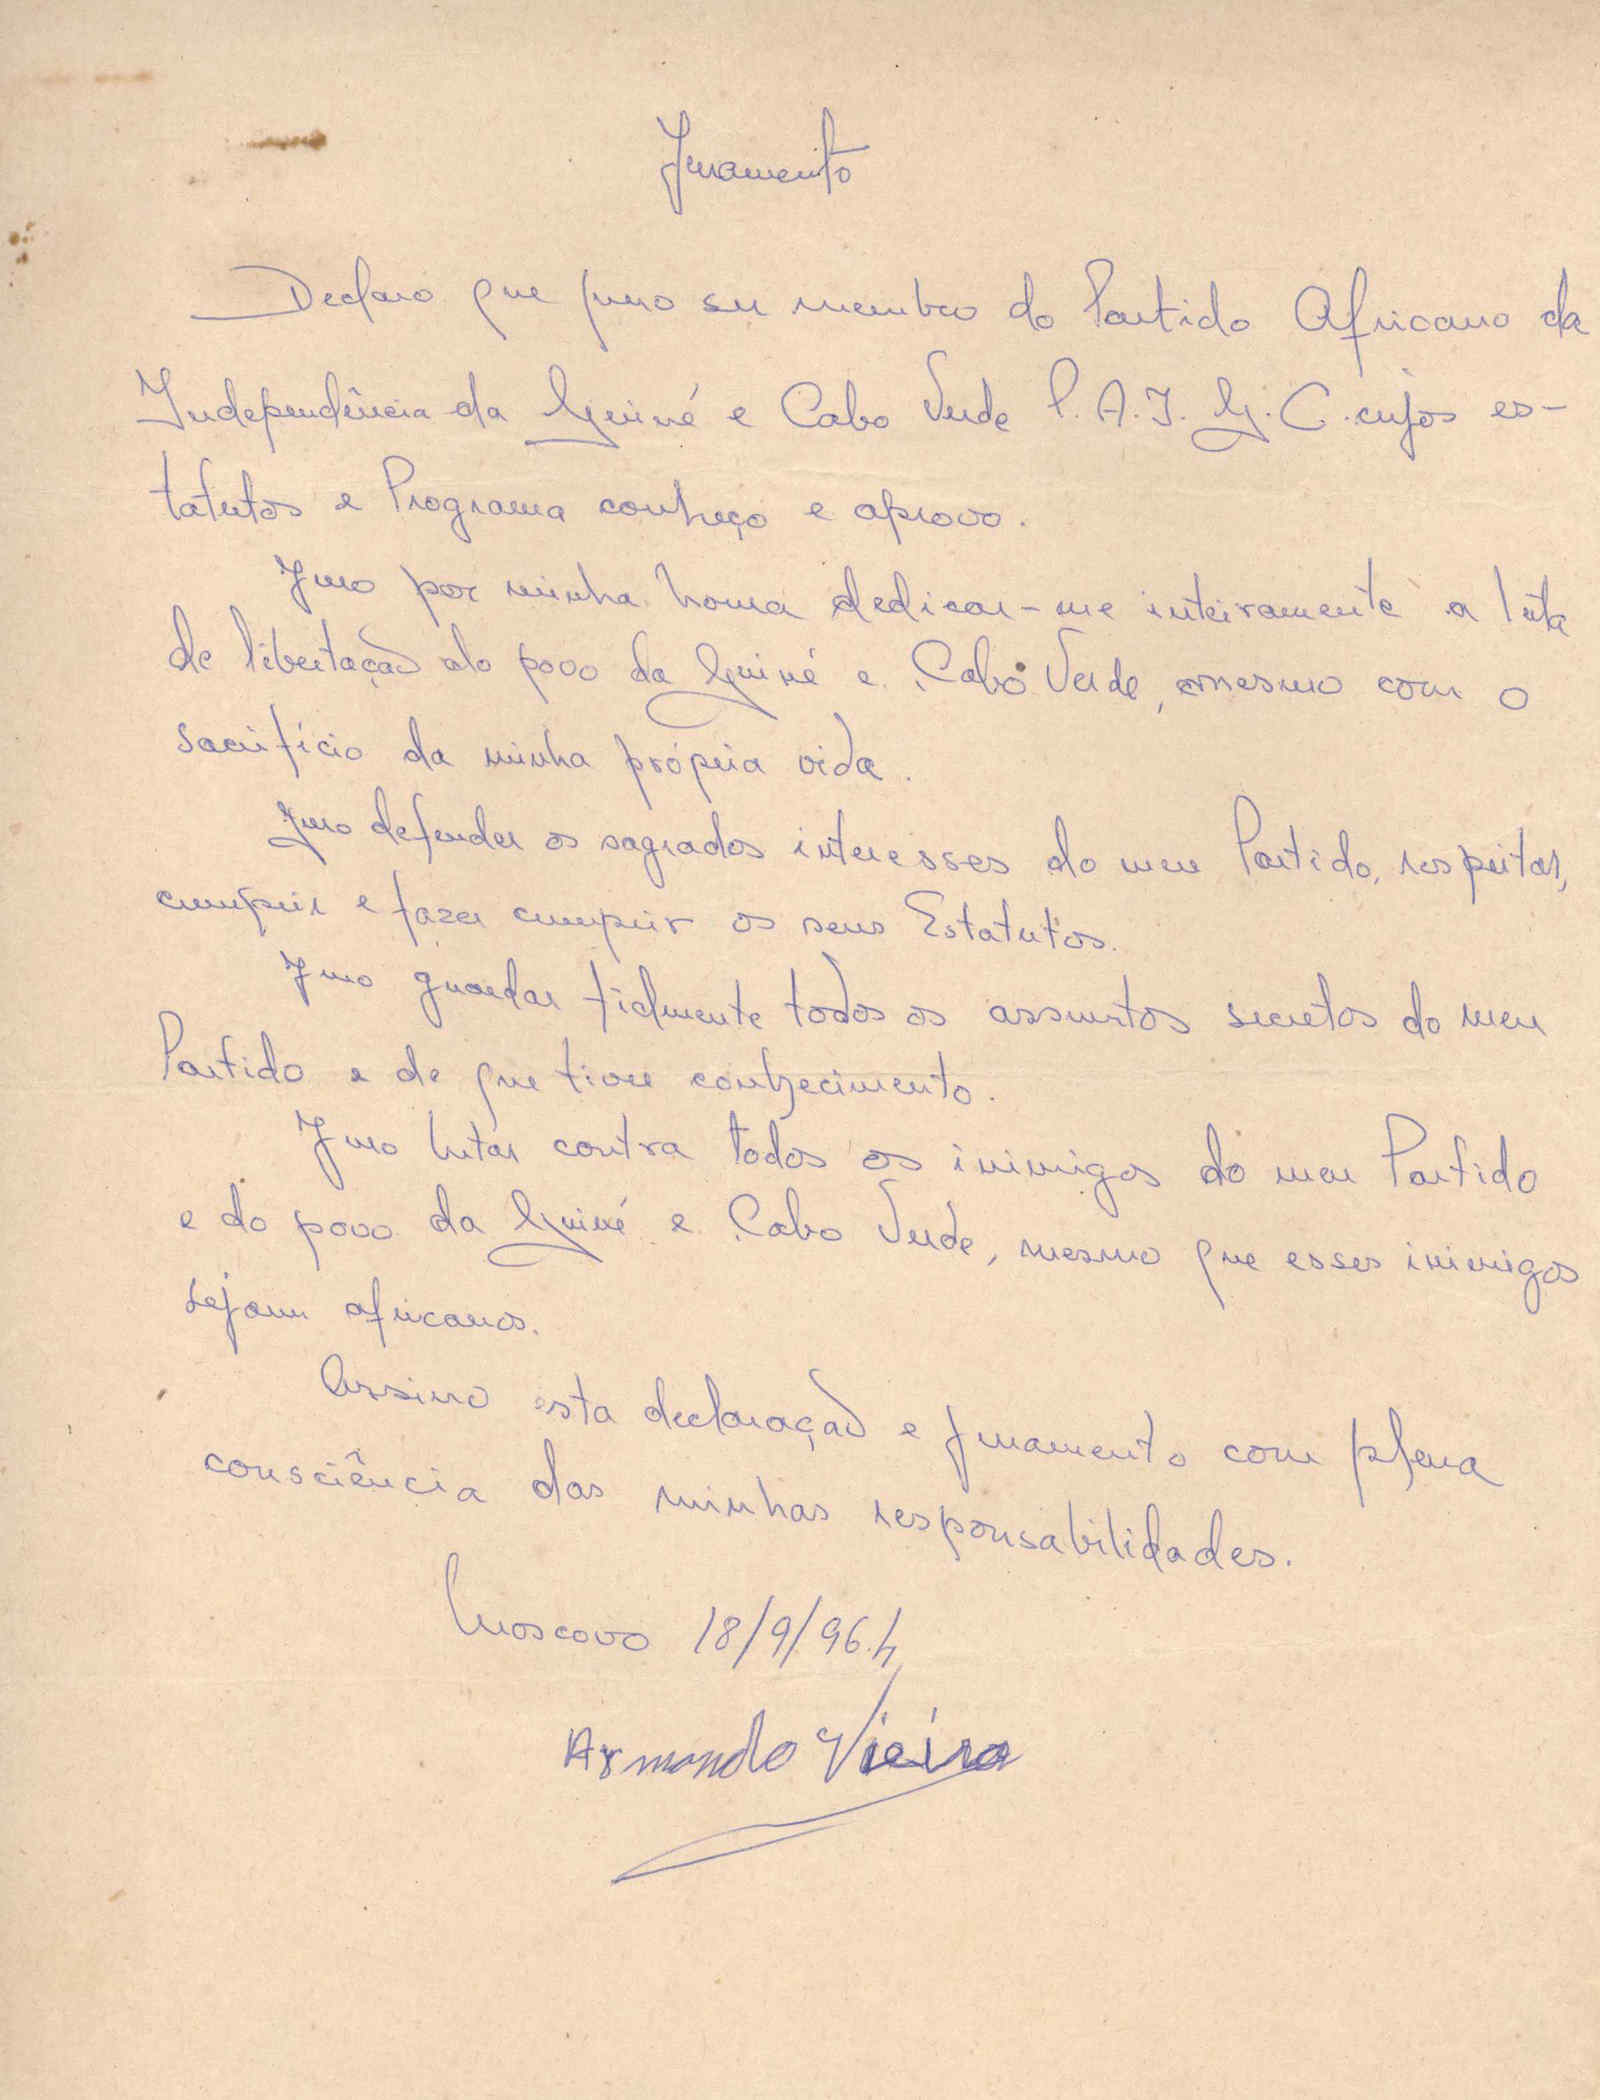 Juramento
Declaro que juro ser membro do Partido Africano da
Independência da Guiné e Cabo Verde P.A.I.G.C. cujos es-
tatutos e Programa conheço e aprovo.
Juro por minha honra dedicar-me inteiramente a luta
de libertação do povo da Guiné e Cabo Verde, mesmo com o
sacrifício da minha própria vida.
Juro defender os sagrados interesses do meu Partido, respeitar,
cumprir e fazer cumprir os seus Estatutos.
Juro guardar fielmente todos os assuntos secretos do meu
Partido e de que tiver conhecimento.
Juro lutar contra todos os inimigos do meu Partido
e do povo da Guiné e Cabo Verde, mesmo que esses inimigos
sejam africanos.
Assino esta declaração e juramento com plena
consciência das minhas responsabilidades.
Moscovo 18/9/964
Armando Vieira